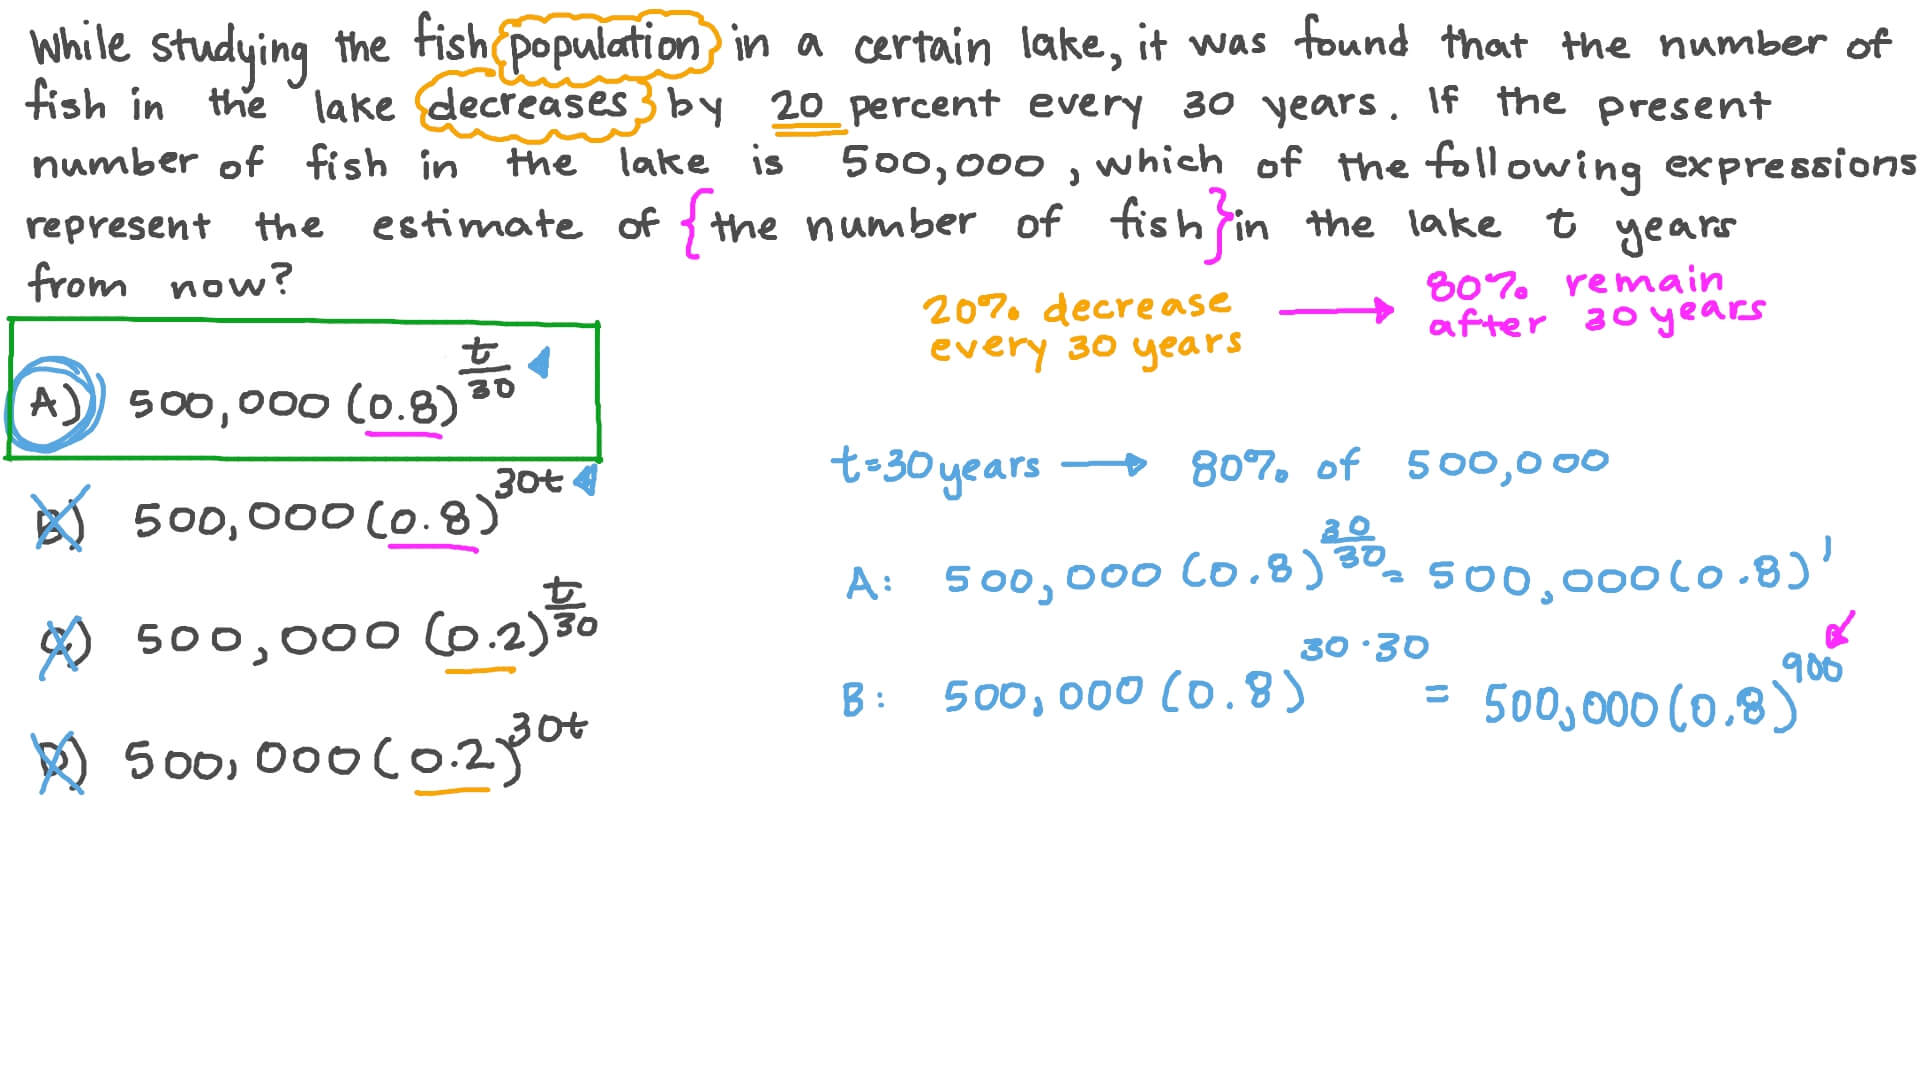 While studying the fish population in a certain lake, it was found that the number of
fish in the lake decreases by 20 percent every 30 years. If the present
number of fish in the lake is 500,000, which of the following expressions
represent the estimate of {the number of fish} in the lake t years
from now?
20% decrease every 30 years → 80% remain after 30 years
A) 500,000 (0.8)^(t/30)
B) 500,000 (0.8)^(30t)
C) 500,000 (0.2)^(t/30)
D) 500,000 (0.2)^(30t)
t=30 years → 80% of 500,000
A: 500,000 (0.8)^(30/30) = 500,000 (0.8)^1
B: 500,000 (0.8)^(30·30) = 500,000 (0.8)^900